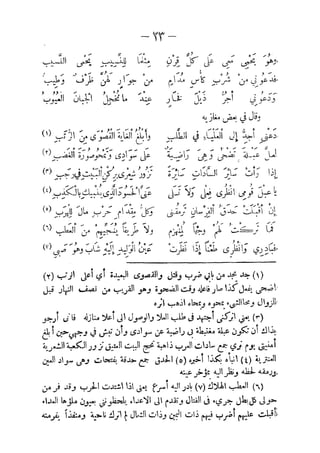 — ٢٣ —
وهو يحمي حمى على كل قرن مثلما للنسيب يحمي النسيب
فدعوني من شرب كأس مدام من جوار لهن ظرف وطيب
ودعوني أجر ذيل فخار عندما تخجل الجبان العيوب
وقال في بعض مغازيه
دعني أجد إلى العلياء في الطلب وأبلغ الغاية القصوى من الرتب (١)
لعل عبلة تضحي وهي راضية على سوادي وتمحو صورة الغضب (٢)
إذا رأت سائر السادات سائرة تزور شعري بركن البيت في رجب (٣)
يا عبل قومي انظري فعلي ولا تسلي عني الحسود الذي ينبيك بالكذب (٤)
إذ أقبلت حدق الفرسان ترمقني وكل مقدام حرب مال للهرب (٥)
فما تركت لهم وجهاً لمنهزم ولا طريقاً ينجيهم من العطب (٦)
فبادري وانظري طعناً إذا نظرت عين الوليد إليه شاب وهو صبي (٧)
(١) جد يجد من بابي ضرب وقتل والقصوى البعيدة أي أعلى الرتب (٢)
اضحى يفعل كذا صار فاعله وقت الضحوة وهو القريب من نصف النهار قبل
الزوال ومحا الشيء يمحوه ومحاء اذهب اثره
(٣) يعني اتركني أجتهد في طلب العلا والوصول الى أعلا منازله فاني أرجو
بذلك أن تكون عبلة مغتبطة بي راضية عن سوادي وأن تبش في وجهي حين أبلغ
أمنيتي يوم تري جمع سادات العرب ذاهبة لحج البيت العتيق تزور الكعبة الشعرية
العنترية (٤) انبأه بكذا أخبره (٥) الحدق جمع حدقة بفتحات وهي سواد العين
ورمقه لحظه ونظر اليه بمؤخر عينه
(٦) العطب الهلاك (٧) بادر اليه أسرع يعني اذا اشتدت الحرب وقد فر من
حولي كل بطل جريء في القتال وتقدم الى الاعداء يلحظونني بعيون ملؤها العداء
أقبلت عليهم أضرب فيهم ذات اليمين وذات الشمال لم اترك ناحية ومنفذاً يفر منه